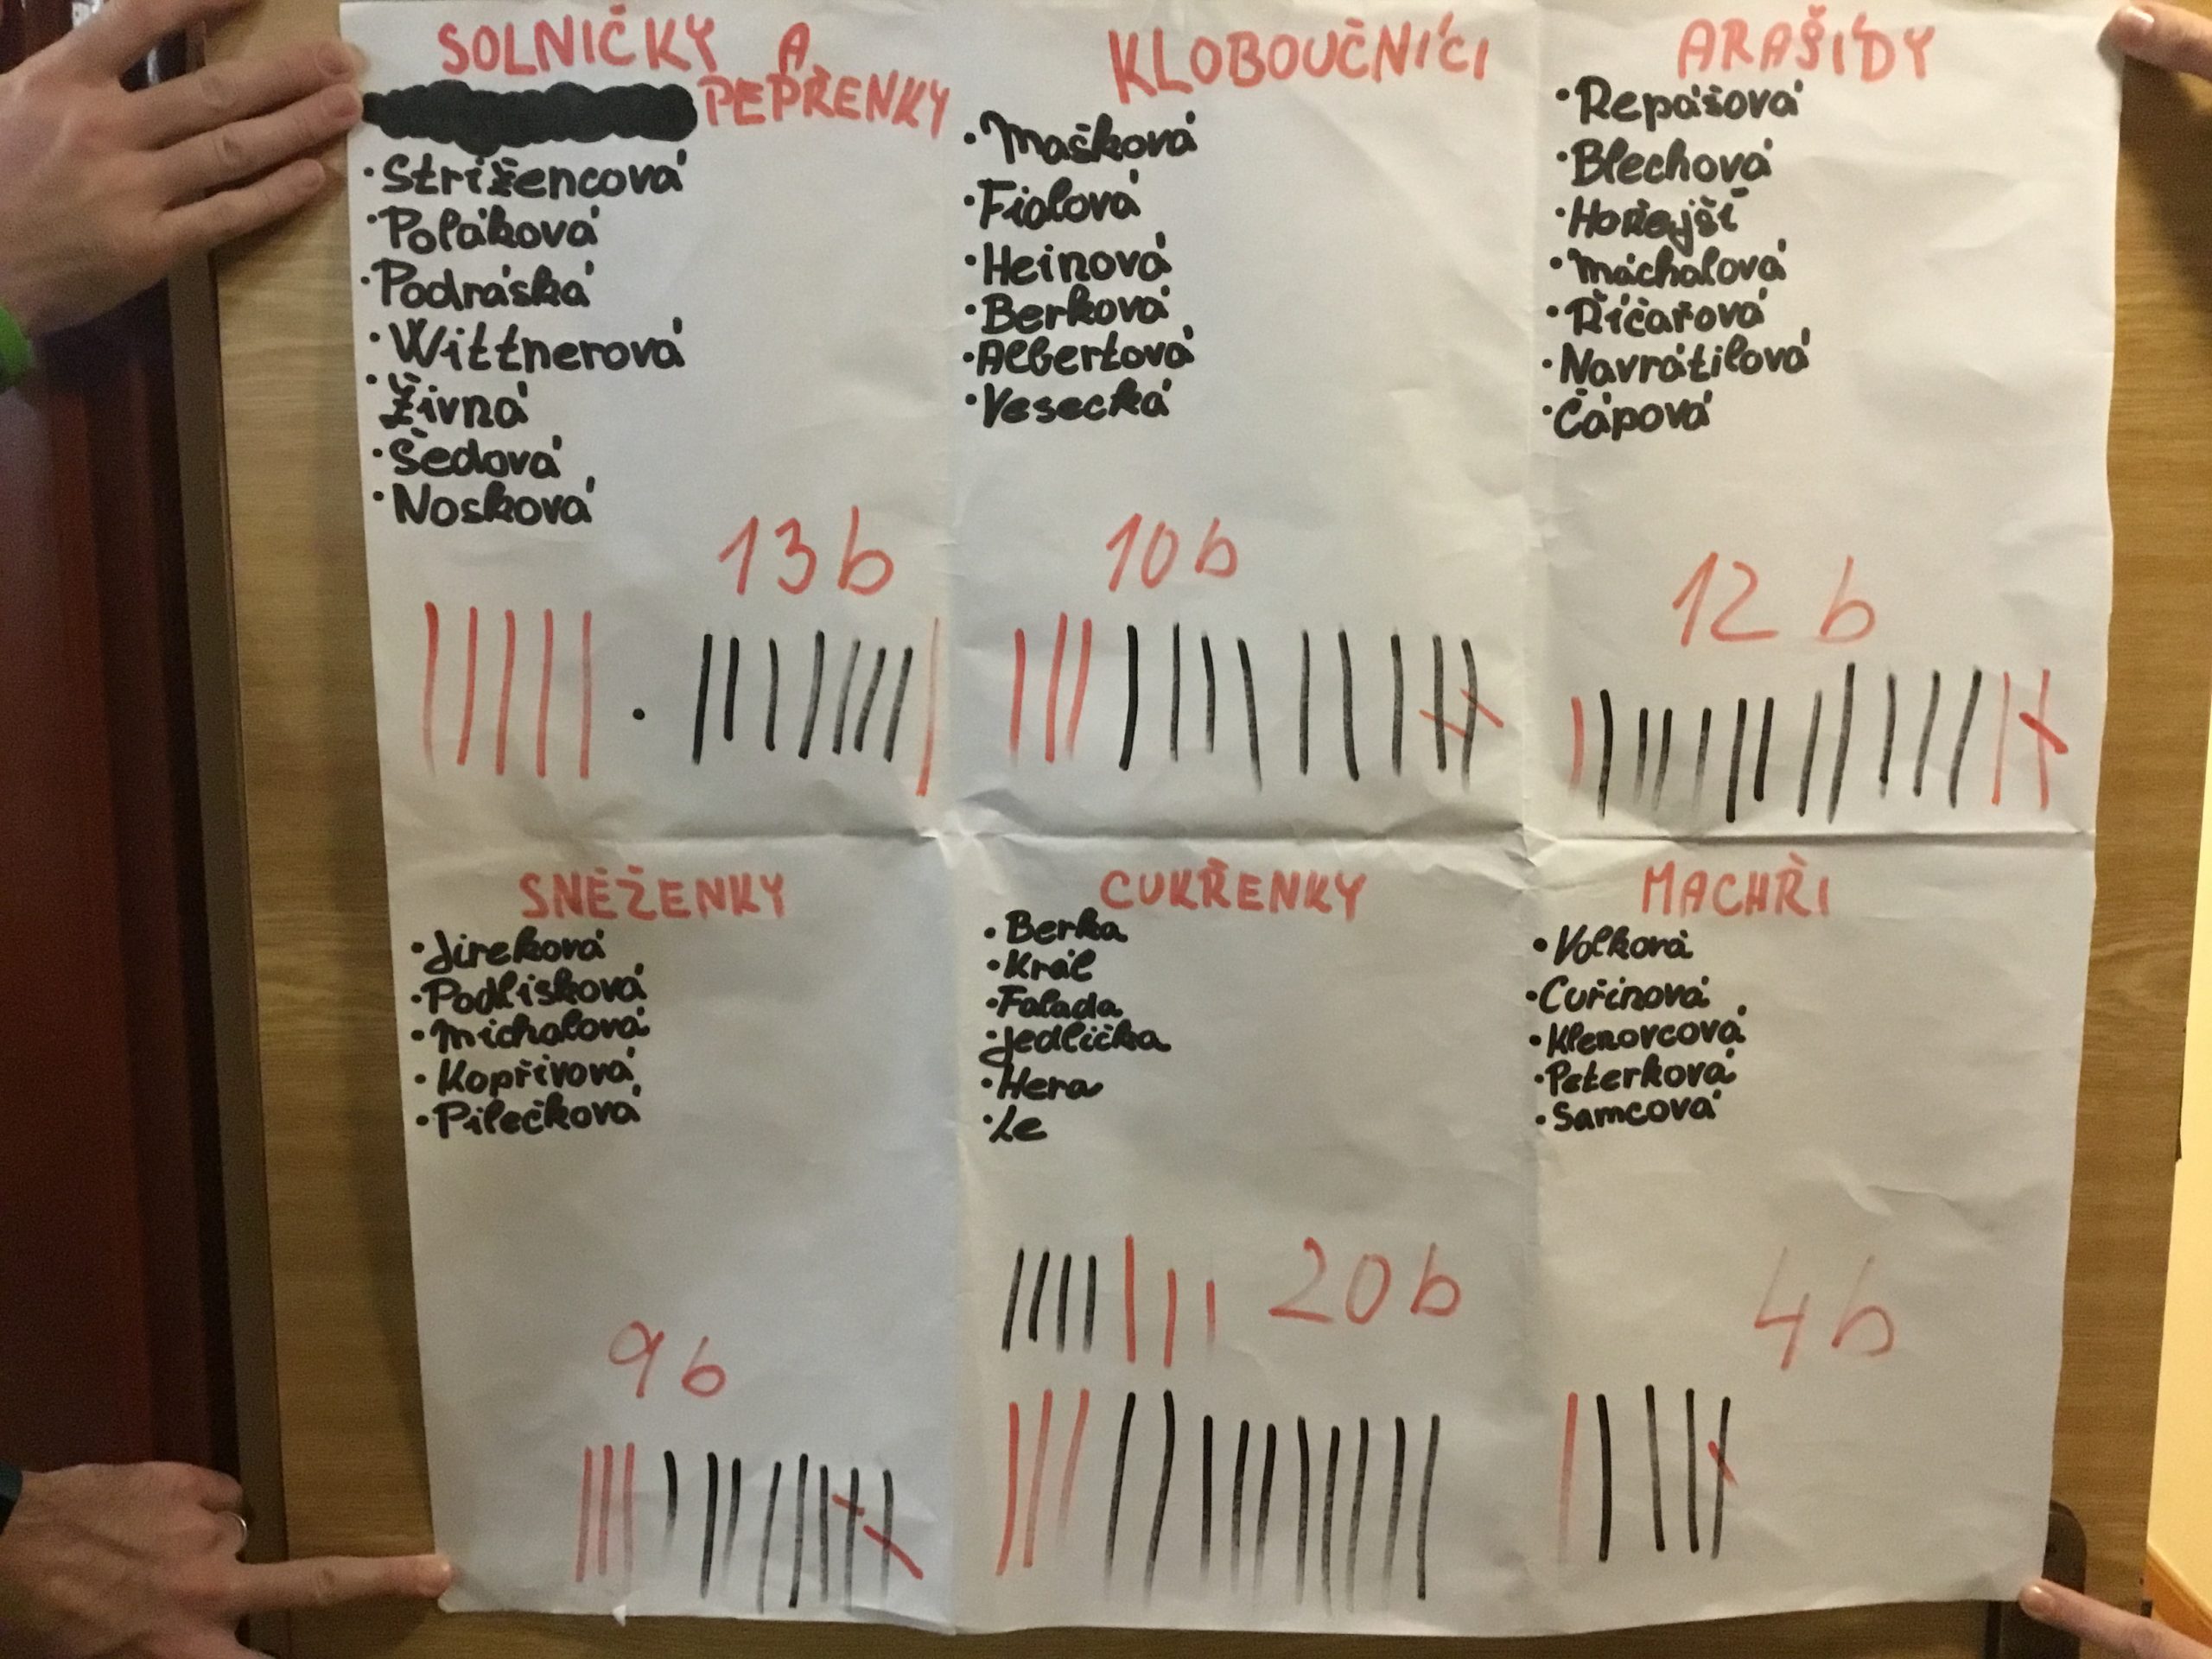 SOLNIČKY A
PEPŘENKY
• Strižencová
• Poláková
• Podráská
• Wittnerová
• Živná
• Šedová
• Nosková
13 b
KLOBOUČNÍCI
• Mašková
• Fialová
• Heinová
• Berková
• Albertová
• Vesecká
10 b
ARAŠÍDY
• Repášová
• Blechová
• Hořejší
• Máchalová
• Říčařová
• Navrátilová
• Čápová
12 b
SNĚŽENKY
• Jireková
• Podlisková
• Michalová
• Kopřivová
• Pilečková
9 b
CUKŘENKY
• Berka
• Král
• Falada
• Jedlička
• Hera
• Le
20 b
MACHŘI
• Volková
• Cuřínová
• Klenovcová
• Peterková
• Samcová
4 b